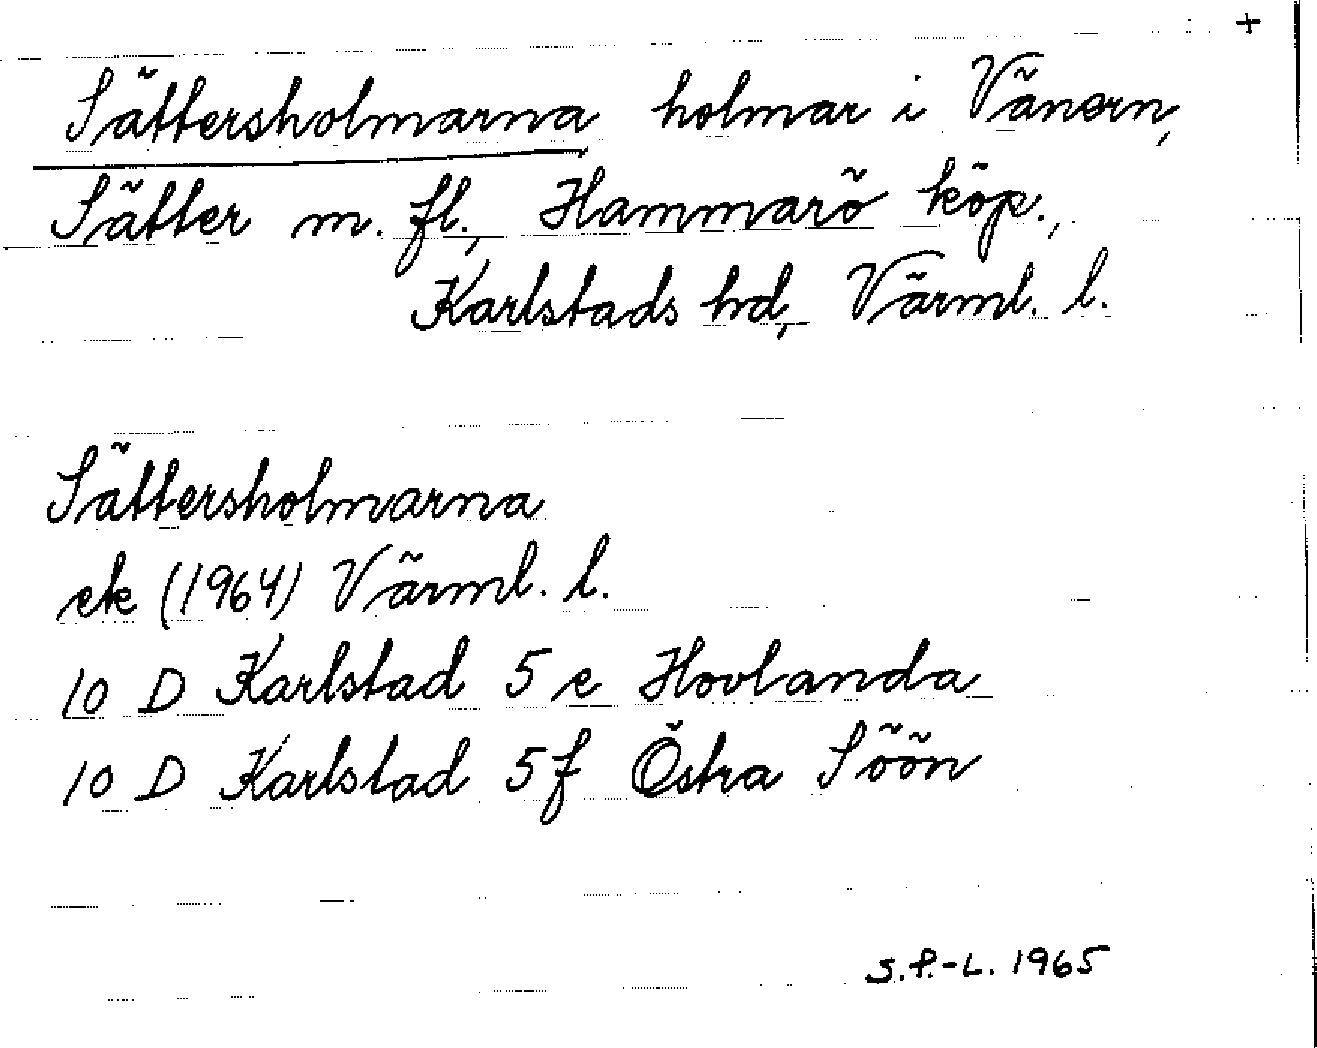 +
Sättersholmarna holmar i Vänern,
Sätter m. fl., Hammarö köp.,
Karlstads hd, Värml. l.
Sättersholmarna
ek (1964) Värml. l.
10 D Karlstad 5 e Hovlanda
10 D Karlstad 5 f Östra Söön
S.P.-L. 1965